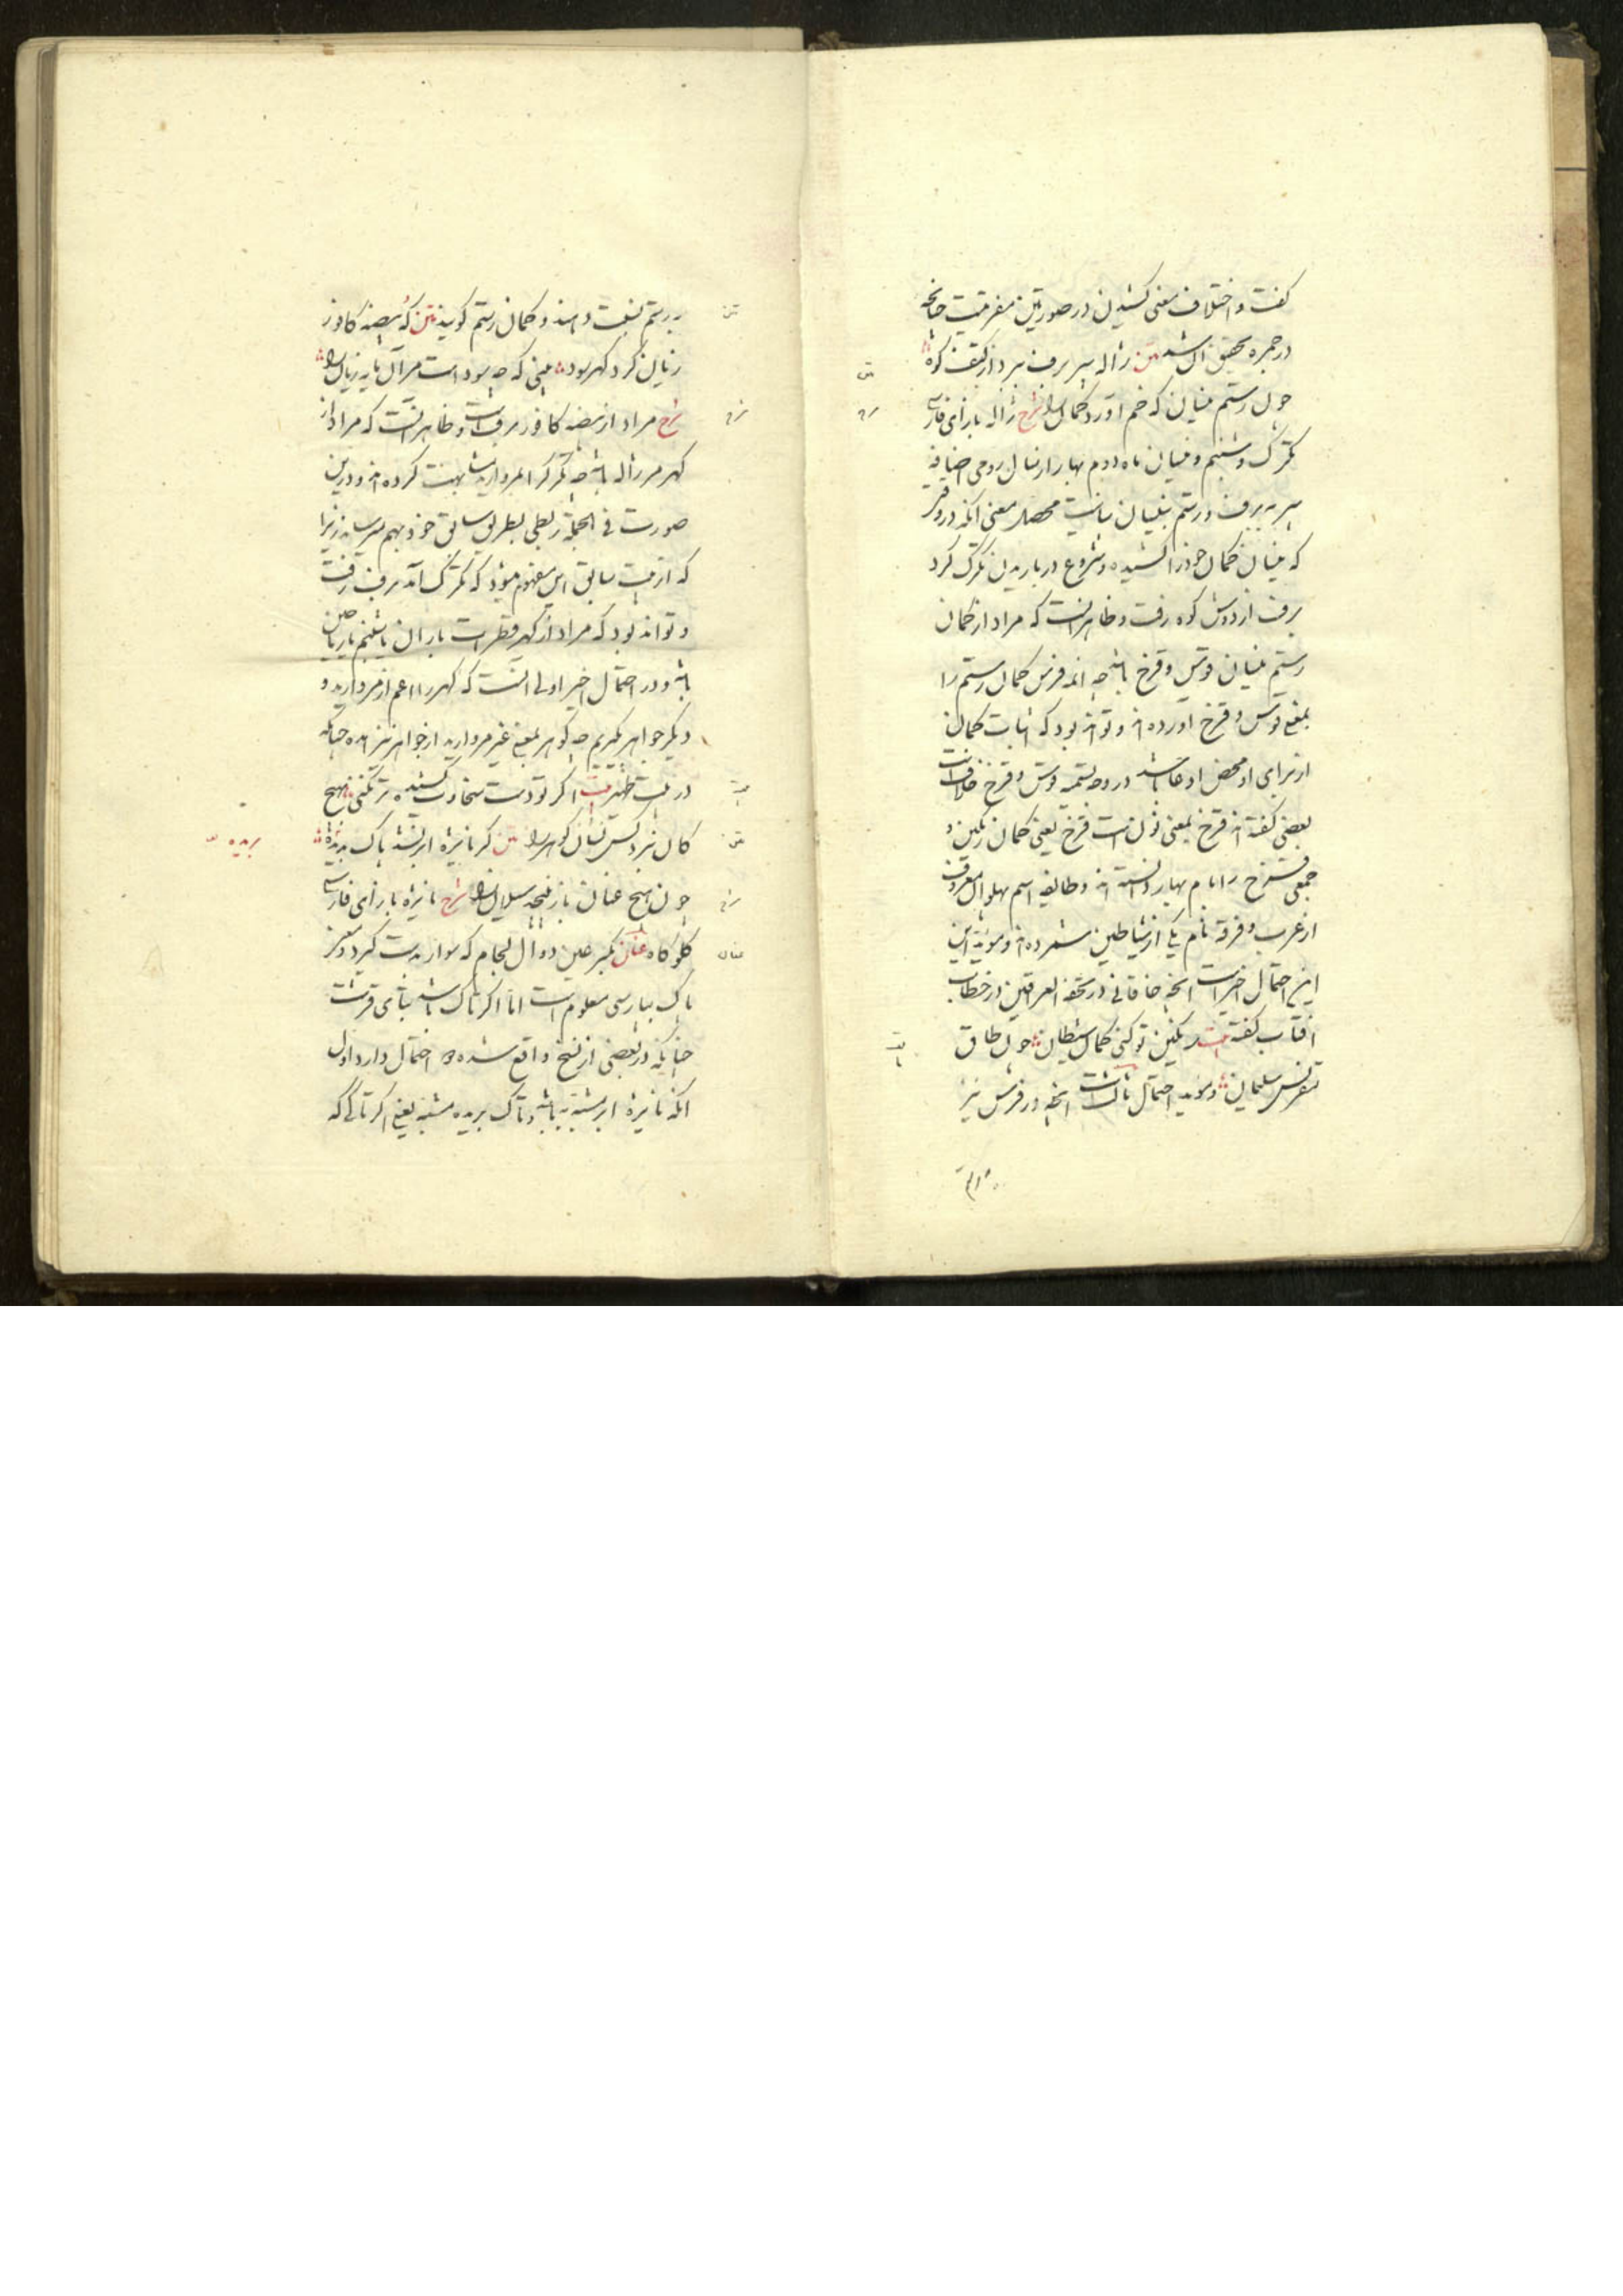 گفت و اختلاف معنی کشیدن در صورتین مضر نیست چنانچه
در جمره تحقیق آن شد متن ژاله سپر برف ببرد از کتف کوه
چون رستم نیسان که خم آورد کمان را شرح ژاله بازای فارسی
تگرک و شبنم و نیسان ماه دوم بهار از سال رومی اضافه
سپر به برف و رستم بنیسان بیانیست محصل معنی آنکه در وقتی
که نیسان کمان خود را کشیده و شروع در باریدن تگرک کرد
برف از دوش کوه رفت و ظاهر آنست که مراد از کمان
رستم نیسان قوس و قزح باشد چه ائمه فرس کمان رستم را
بمعنی قوس و قزح آورده‌اند و تواند بود که اثبات کمان
از برای او محض ادعا باشد در وجه تسمیه قوس و قزح خلافست
بعضی گفته‌اند قزح بمعنی لونست قزح یعنی کمان رنگین و
جمعی قزح را نام بهار دانسته‌اند و طایفه اسم پهلوان معروف
از عرب و فرقه نام یکی از شیاطین شمرده‌اند و موید این
این احتمال اخیر است آنچه خاقانی در تحفة العراقین در خطاب
آفتاب گفته بیت رنگین تو کنی کمان شیطان چون طاق
سلیمان و موید احتمال آنچه در فرس نیز
برستم نسبت دهند و کمان رستم گویند متن که بیضه کافور
زیان کرد و گهر سود بینی که چه سود است مر آن مایه زیان را
شرح مراد از بیضه کافور برفست و ظاهر آنست که مراد از
گهر ژاله باشد چه تگرک را بمروارید مشابهت کرده‌اند و درین
صورت فی الجمله ربطی بطریق سابق خود بهم میرساند زیرا
که از بیت سابق این مفهوم میشود که تگرک آمد برف رفت
و تواند بود که مراد از گهر قطرات باران یا شبنم یا ریاحین
باشد و در احتمال اخیر اولی آنست که گهر را اعم از مروارید و
دیگر جواهر بگیریم چه گوهر بمعنی غیر مروارید از جواهر نیز آمده چنانکه
در بیت ظهیر بیت اگر تو دست سخاوت کشیده‌تر نکنی بهیچ
کان نبرد کس نشان گوهر را متن گر نایژه ابر نشد پاک بریده
چون هیچ عنان باز نپیچد سیلان را شرح نایژه بازای فارسی
گلوگاه عنان بکسر عین دوال لجام که سوار بدست گیرد و
پاک بپارسی معلوم است اما اگر تاک باشد بتای قرشت
چنانچه در بعضی از نسخ واقع شده دو احتمال دارد اول
آنکه نایژه ابر مشبه به باشد و تاک بریده مشبه یعنی اگر تاکی که
متن
شرح
بیت
متن
شرح
عنان
بریده